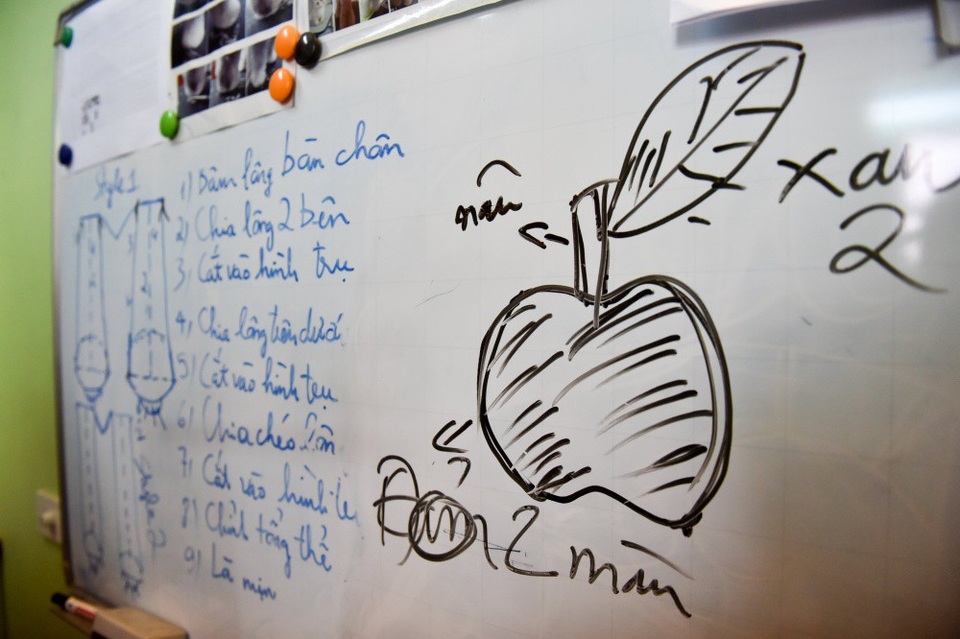 Style 1
1) Bấm lông bàn chân
2) Chia lông 2 bên
3) Cắt vào hình trụ
4) Chia lông trên dưới
5) Cắt vào hình trụ
6) Chia chéo
7) Cắt vào hình
8) Chỉnh tổng thể
9) Là mịn
nâu
xan
2
2 màu